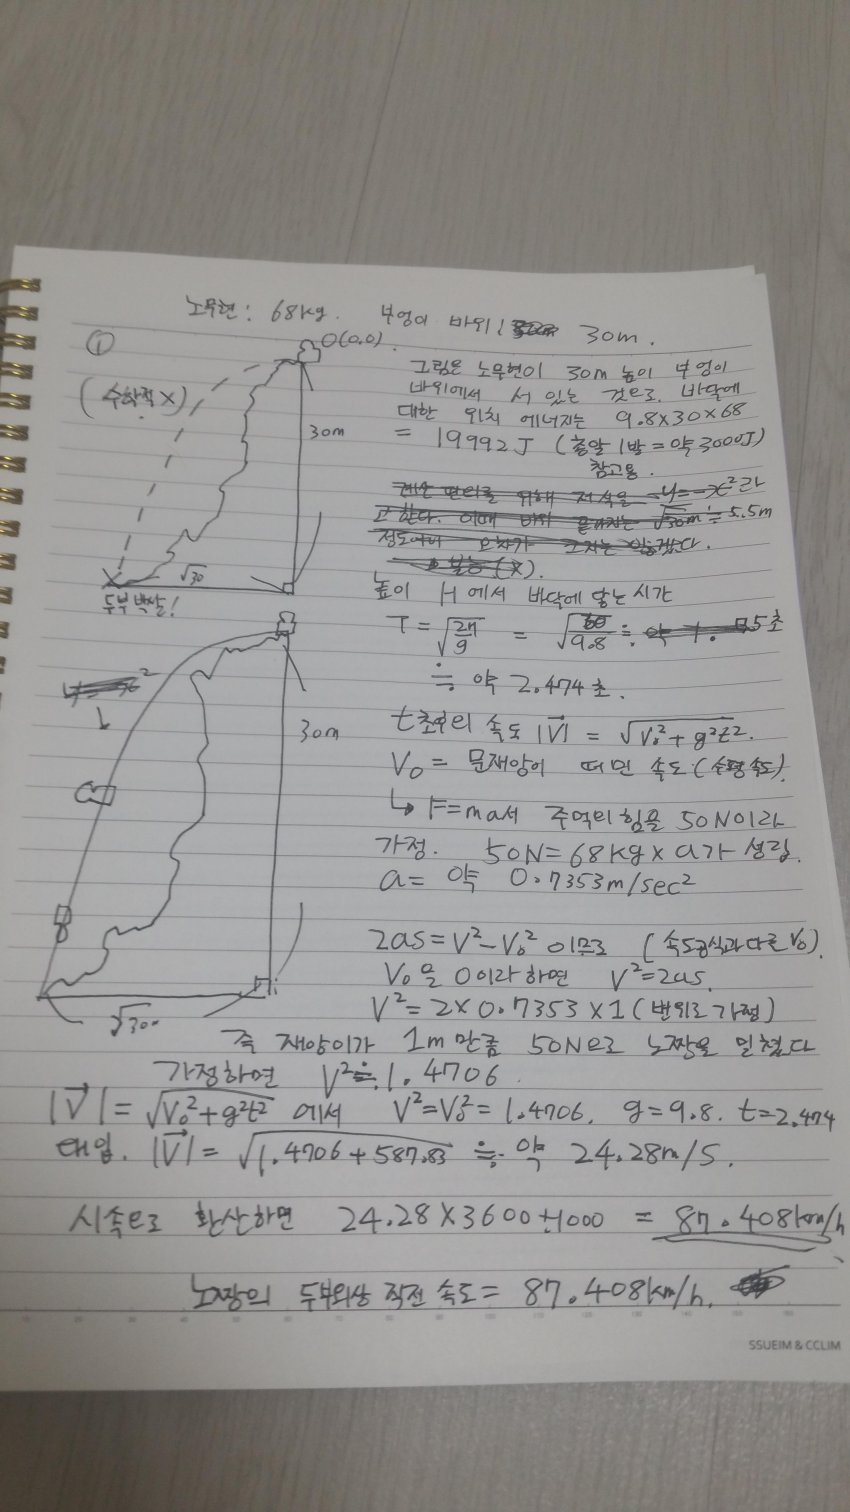 노무현: 68kg. 부엉이 바위: 30m.
①
O(0,0).
(수학적 X)
30m
√30
두부 박살!
그림은 노무현이 30m 높이 부엉이
바위에서 서 있는 것으로, 바닥에
대한 위치 에너지는 9.8×30×68
= 19992J (총알 1발 = 약 3000J)
참고용.
계산 편의를 위해 저 식을 y=-x²라
고 한다. 이때 바위 끝까지는 √30m ≒ 5.5m
높이 H에서 바닥에 닿는 시간
T = √2H/g = √60/9.8 ≒
≒ 약 2.474초.
30m
√30
t초 후의 속도 |V| = √V₀²+g²t².
V₀ = 문재앙이 떠민 속도(수평속도).
↳ F=ma서 주먹의 힘을 50N이라
가정. 50N=68kg×a가 성립.
a= 약 0.7353m/sec²
2as=V²-V₀² 이므로 (속도공식과 다른 V₀).
V₀을 0이라 하면 V²=2as.
V²=2×0.7353×1(변위로 가정)
즉 재앙이가 1m만큼 50N으로 노짱을 밀쳤다
가정하면 V²≒1.4706
|V|=√V₀²+g²t² 에서 V²=V₀²=1.4706, g=9.8. t=2.474
대입. |V|=√1.4706+587.83 ≒ 약 24.28m/s.
시속으로 환산하면 24.28×3600÷1000 = 87.408km/h
노짱의 두부외상 직전 속도= 87.408km/h.
SSUEIM & CCLIM